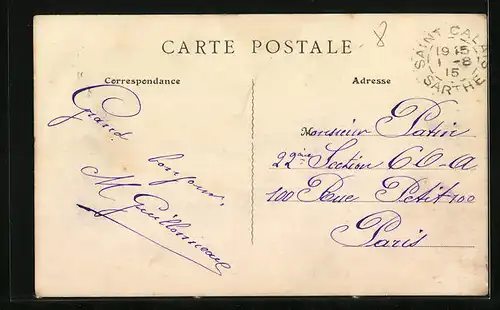 8
CARTE POSTALE
SAINT CALAIS
1915
1 -8
15
SARTHE
Correspondance
Adresse
Grand
bonjour,
Monsieur Patin
22ème Section C O-A
100 Rue Petit 100
Paris